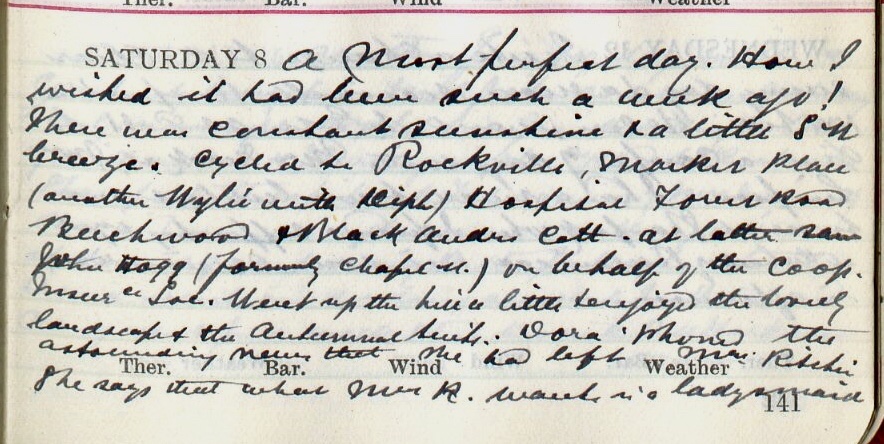 Ther. Bar. Wind Weather
SATURDAY 8 A most perfect day. How I
wished it had been such a week ago!
There was constant sunshine & a little S.W
breeze. Cycled to Rockville, Market Place
(another Wylie with Diph) Hospital Tower Road
Beechwood & Black Andro Cott. at latter saw
John Hogg (formerly Chapel St.) on behalf of the Coop.
Insurce Soc. Went up the hill a little & enjoyed the lovely
landscape & the Autumnal tints. Dora 'phoned the
astounding news that she had left Mrs. Ritchie
Ther. Bar. Wind Weather
She says that what Mrs R. wants is a ladysmaid
141